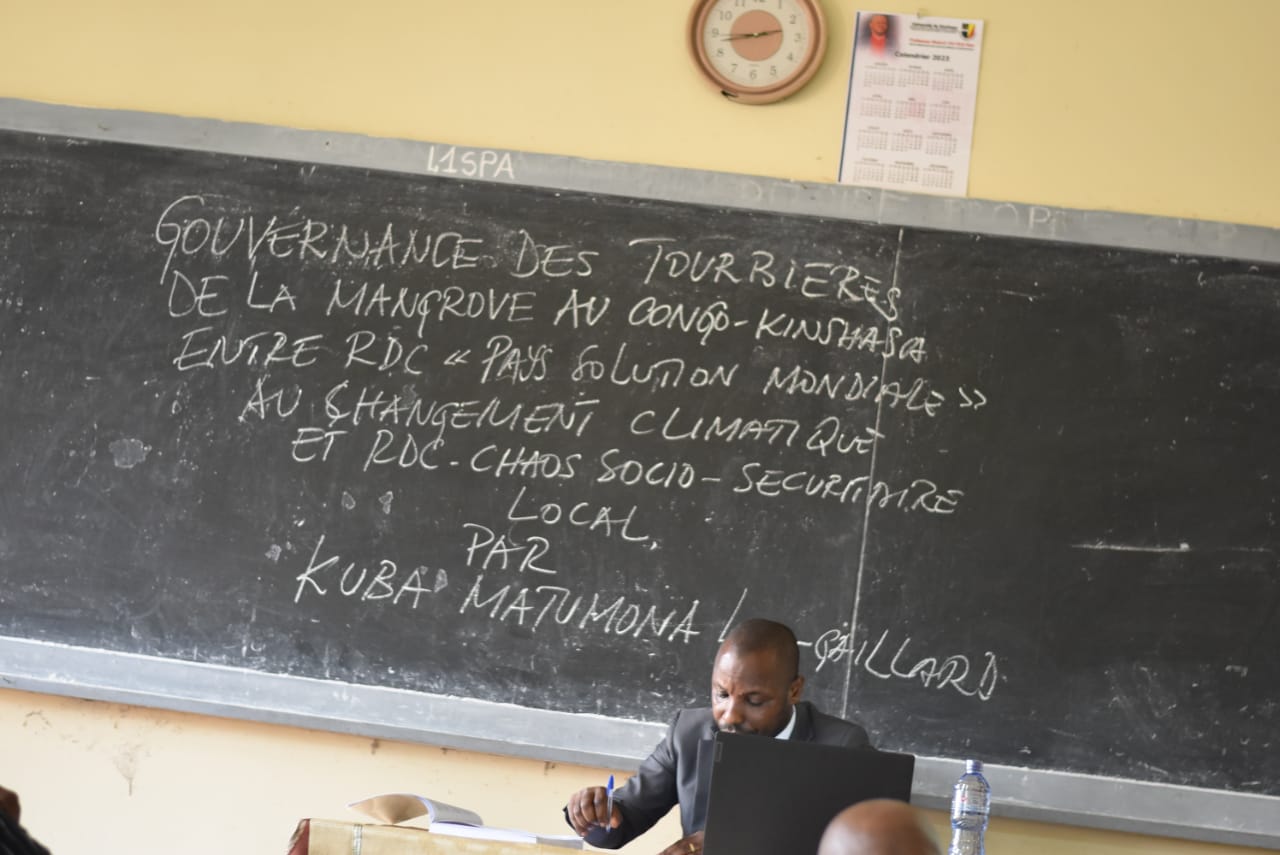 Calendrier 2023
L1SPA
GOUVERNANCE DES TOURBIERES
DE LA MANGROVE AU CONGO-KINSHASA
ENTRE RDC « PAYS SOLUTION MONDIALE »
AU CHANGEMENT CLIMATIQUE
ET RDC-CHAOS SOCIO-SECURITAIRE
LOCAL,
PAR
KUBA MATUMONA -GAILLARD